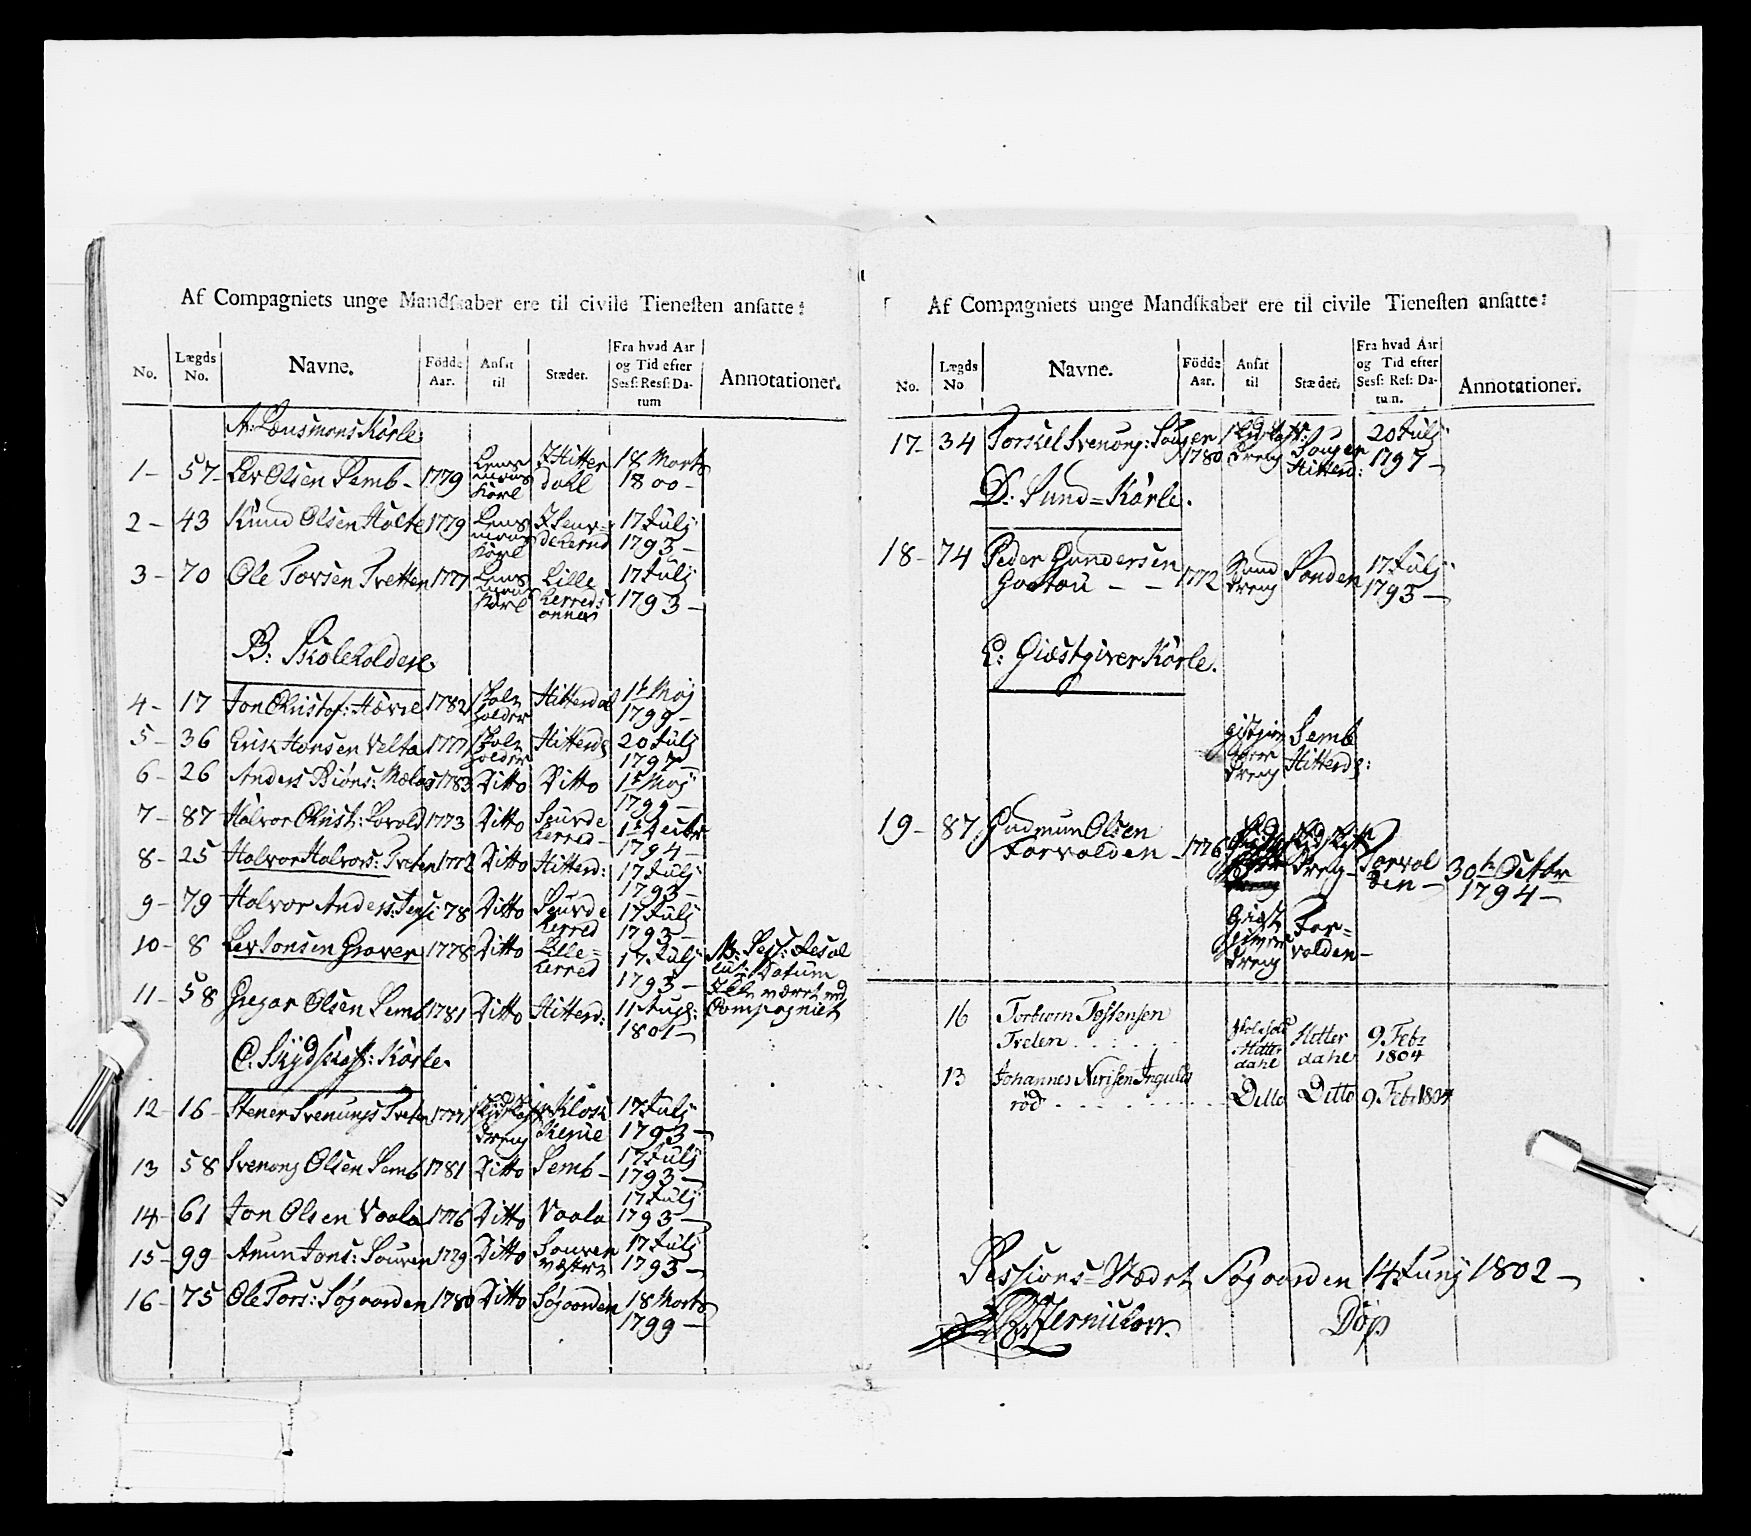 Af Compagniets unge Mandſkaber ere til civile Tieneſten anſatte:
No. Lægds No. Navne. Födde Aar. Anſat til Stædet. Fra hvad Aar og Tid efter Sesſ: Resſ: Datum Annotationer.
A: Lensmans Karle
1 - 57 - Lev Olsen Semb - 1779 Lens mans Karl I Hitter dahl 18 Marts 1800 -
2 - 43 Knud Olsen Holte 1779 Lens mans Karl 17 Julj 1793 -
3 - 70 Ole Torsen Tretten 1777 Lens mans Karl Lille herreds 17 Julj 1793 -
B: Skoleholdere
4 - 17 Jon Christof: 1782 Skole holder Hitterdal 1t Maj 1799 -
5 - 36 Erik Hansen Velta 1777 Skole holder Hitterd: 20 Julj 1797 -
6 - 26 Anders Biöns: 1783 Ditto Ditto 1t Maj 1799 -
7 - 87 Halvor Christ: 1773 Ditto Saude herred - 1794 -
8 - 25 Halvor Halvors: Treten 1772 Ditto Hitterd: 17 Julj 1793 -
9 - 79 Halvor Anders: 78 Ditto Saude herred 17 Julj 1793 -
10 - 8 Lev Jonsen Graver 1778 Ditto Lille= herred 17 Julj 1793 - Sess: Resol Datum været ved Compagniet
11 - 58 Gregar Olsen Semb 1781 Ditto Hitterd: 11 Aug: 1801 -
C. Skydskaf: Karle.
12 - 16 - Stener Svenungs Treten 1777 Skydskaf dreng 17 Julj 1793 -
13 58 Svenong Olsen Semb 1781 Ditto Semb - 17 Julj 1793 -
14 - 61 Jon Olsen Vaala 1776 Ditto Vaala 17 Julj 1793 -
15 - 99 - Anun Jons: Sauren 1779 Ditto Sauren 17 Julj 1793 -
16 - 75 Ole Tors: Søgaarden 1780 Ditto Søgaarden 18 Marts 1799 -
Af Compagniets unge Mandſkaber ere til civile Tieneſten anſatte:
No. Lægds No Navne. Födde Aar. Anſat til Stædet. Fra hvad Aar og Tid efter Sesſ: Reſ: Datun. Annotationer.
17 - 34 Torskel Svenong: 1780 dreng Hitterd: 20 Julj 1797 -
D: Sund = Karle.
18 - 74 Peder Gundersen 1772 Sund dreng Sanden 17 Julj 1793 -
E: Giæstgiver Karle.
dreng Semb Hitterd:
19 - 87 Gudmun Olsen
Forvalden - 1776 dreng - Forval den - 30th Octbr 1794 -
Giæst giver dreng For= valden -
16 Torbiørn Tostensen
Treten . . . . Hitter dahl Hitter dahl 9 Feb: 1804
13 Johannes Nirisen Ingulds
rød . . . . Ditto Ditto 9 Feb: 1804
Sessions=Stædet Søgaarden 14 Junj 1802 -